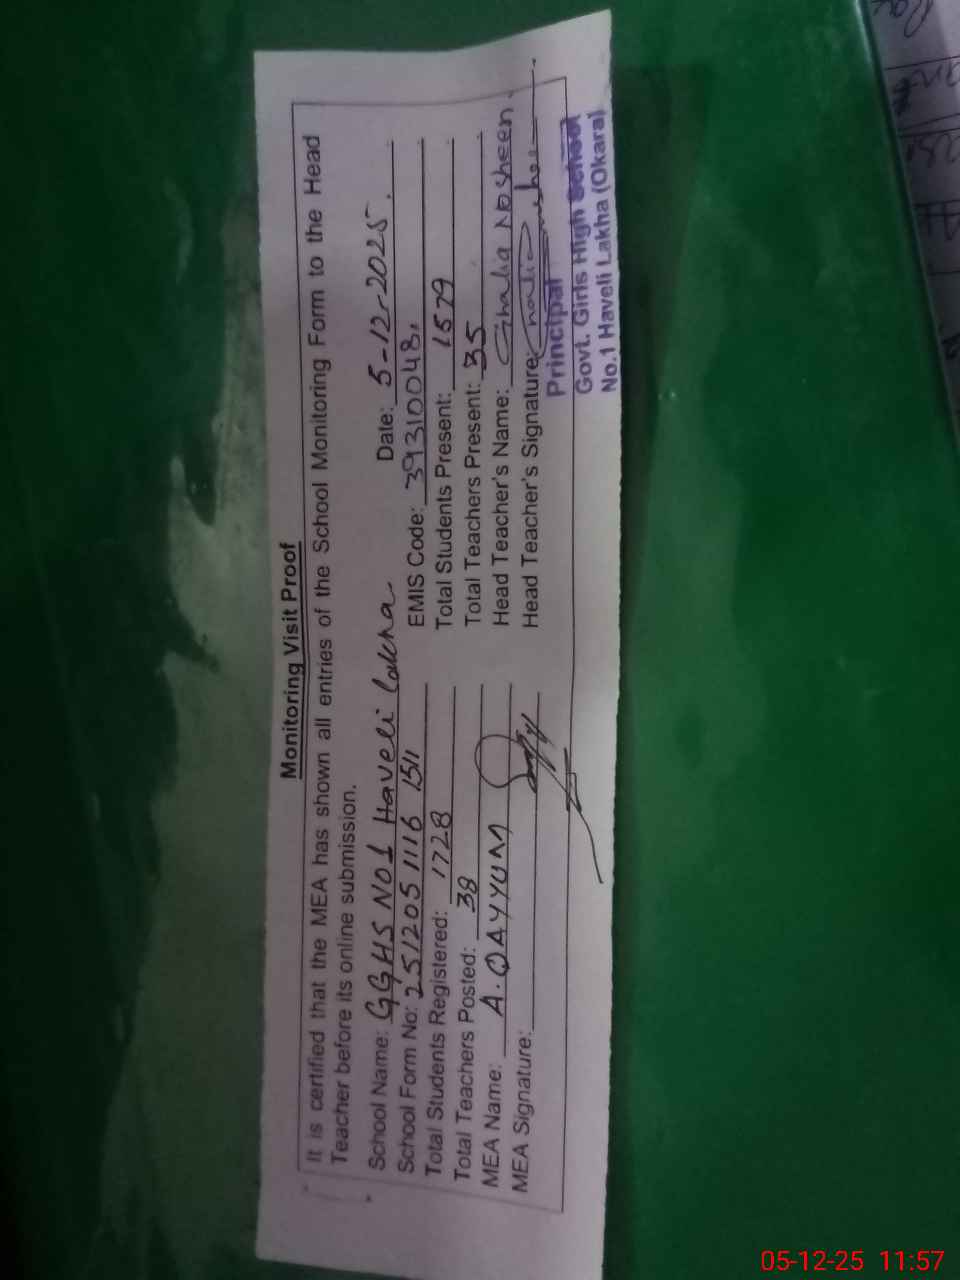 Monitoring Visit Proof
It is certified that the MEA has shown all entries of the School Monitoring Form to the Head
Teacher before its online submission.
School Name: GGHS NO1 Haveli Lakha Date: 5-12-2025.
School Form No: 251205 1116 1511 EMIS Code: 39310048.
Total Students Registered: 1728 Total Students Present: 1579
Total Teachers Posted: 38 Total Teachers Present: 35
MEA Name: A.QAYYUM Head Teacher's Name: Ghalia Nosheen.
MEA Signature: Head Teacher's Signature:
Principal
Govt. Girls High School
No.1 Haveli Lakha (Okara)
05-12-25 11:57